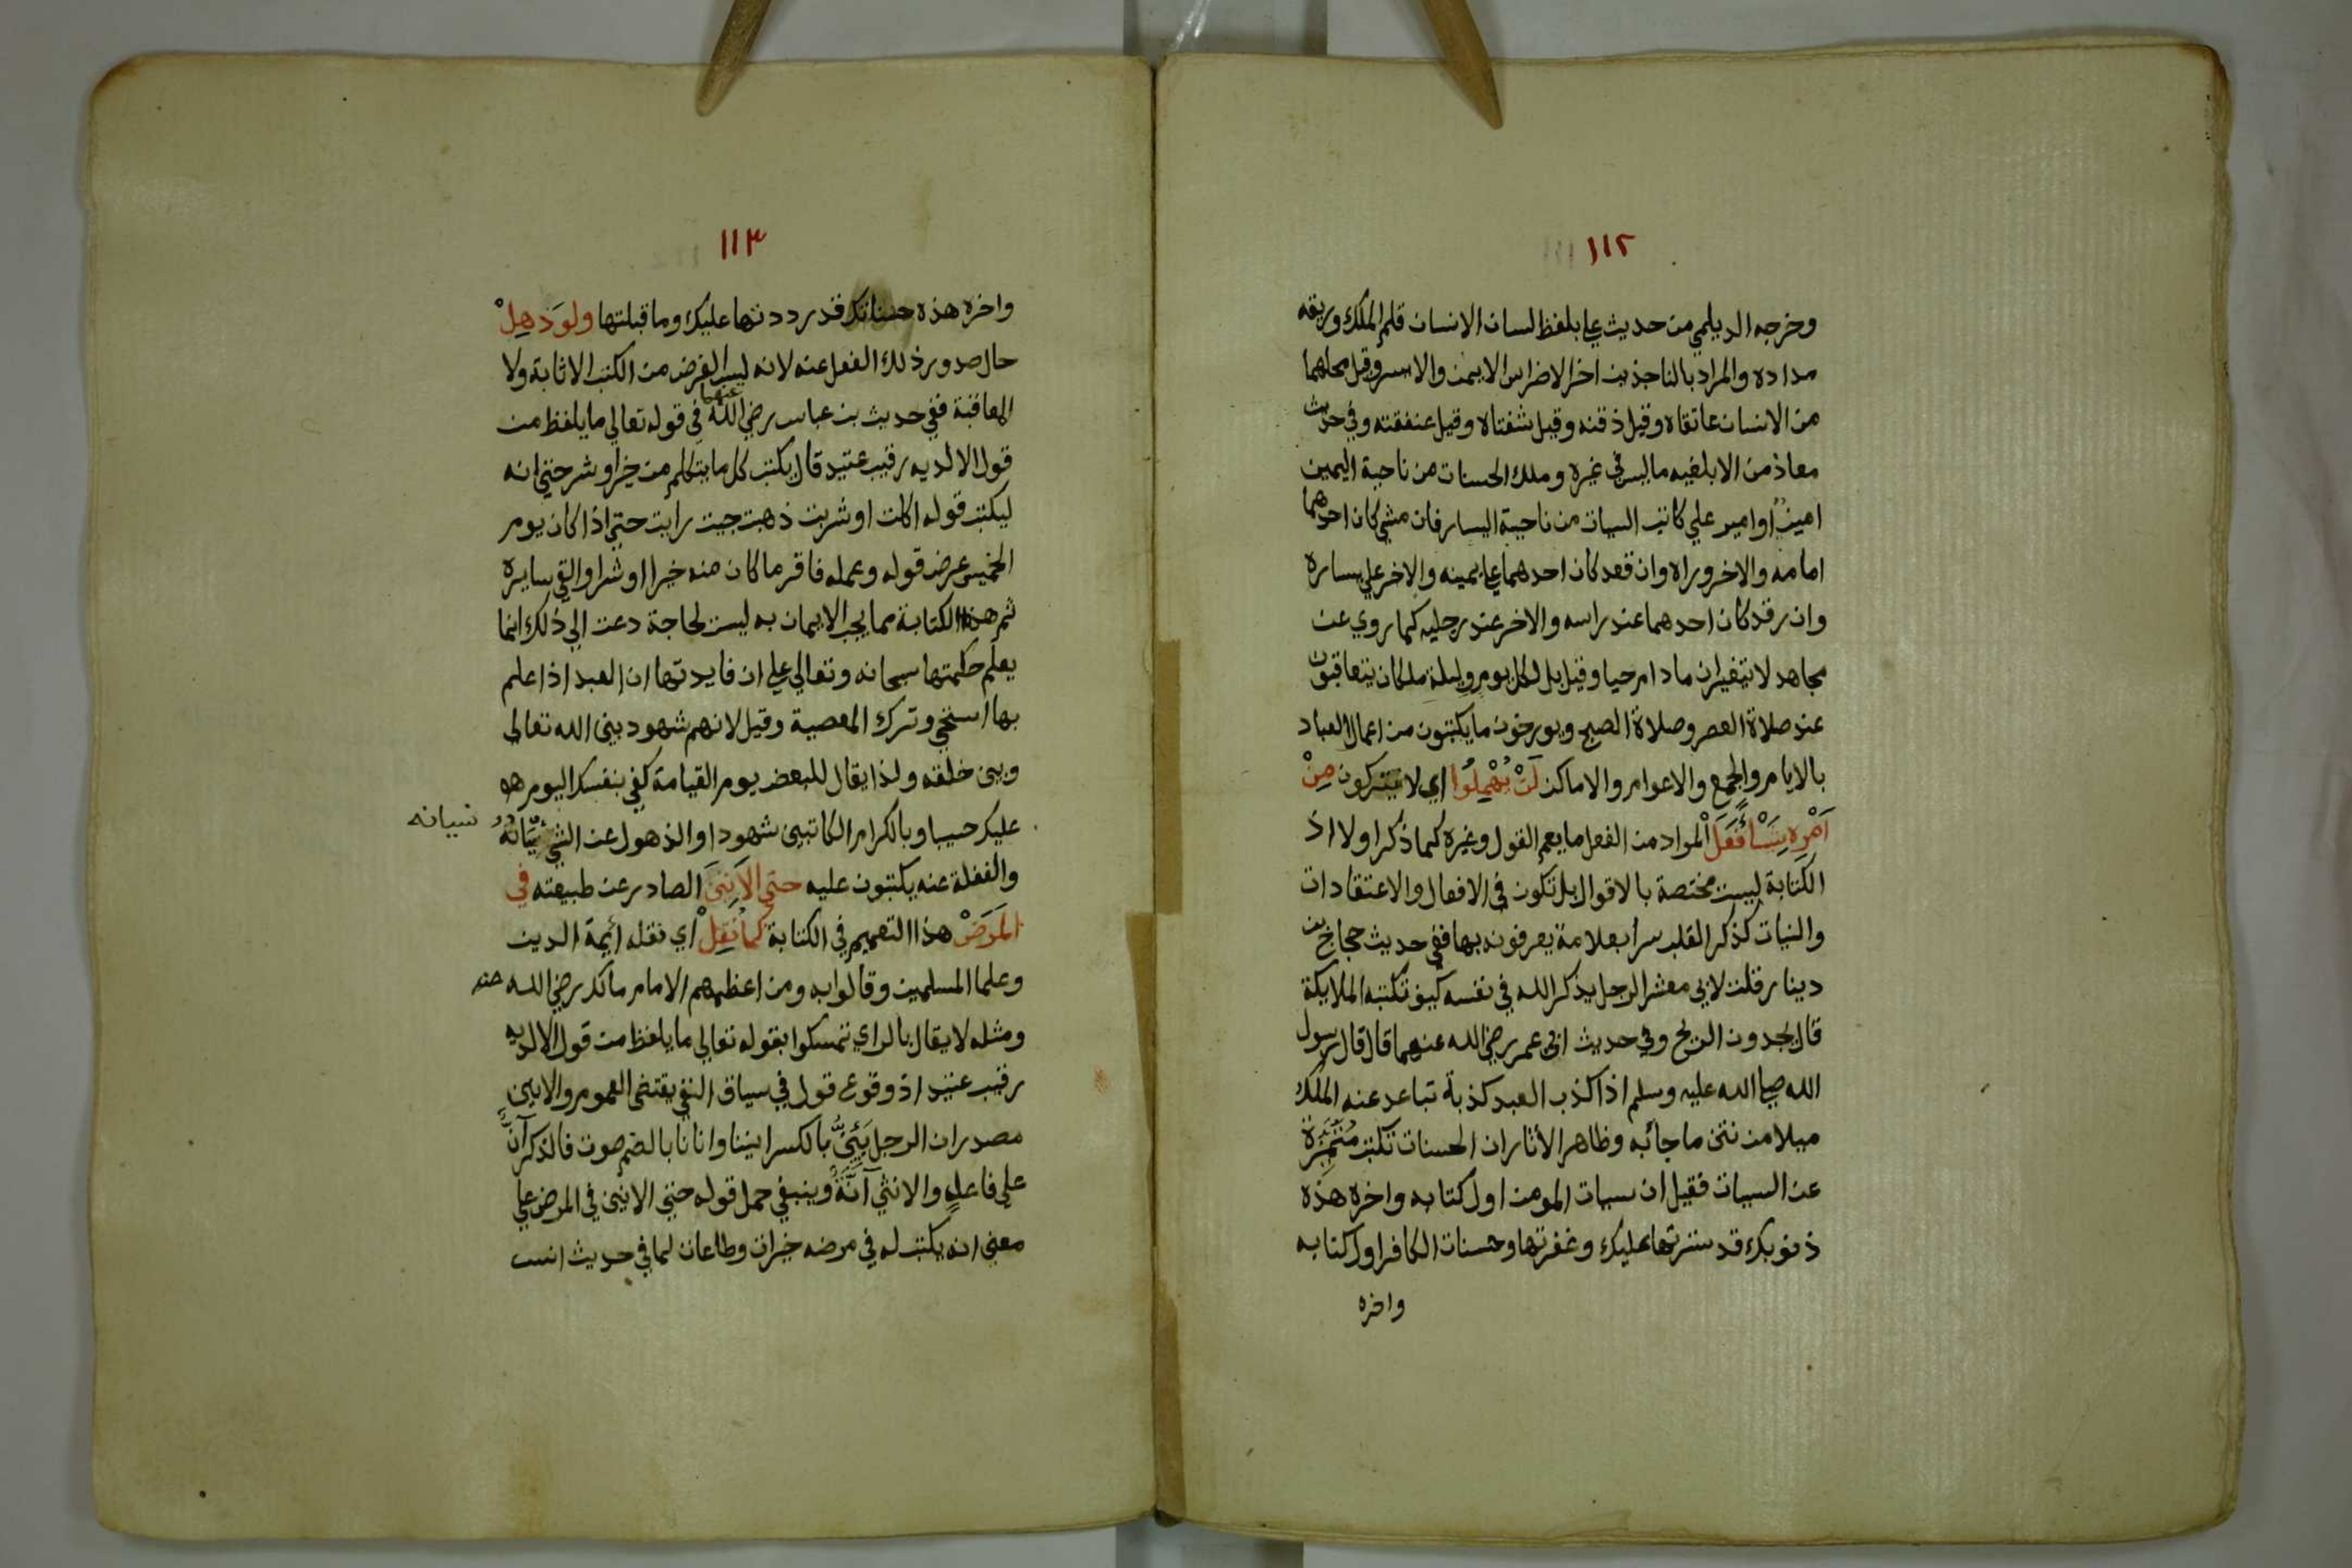 ١١٢
وخرجه الديلمي من حديث علي بلفظ لسان الانسان قلم الملك وريقه
مداده والمراد بالناجذين اخر الاضراس الايمن والايسر وقيل محلهما
من الانسان عاتقاه وقيل ذقنه وقيل شفتاه وقيل عنفقته وفي حديث
معاذ من الابلغيه ما ليس في غيره وملك الحسنات من ناحية اليمين
امين او امير علي كاتب السيات من ناحية اليسار فان مشي كان احدهما
امامه والاخر وراه وان قعد كان احدهما علي يمينه والاخر علي يساره
وان رقد كان احدهما عند راسه والاخر عند رجليه كما روي عن
مجاهد لا يتغيران ما دام حيا وقيل بل لكل يوم وليلة ملكان يتعاقبون
عند صلاة العصر وصلاة الصبح ويورخون ما يكتبون من اعمال العباد
بالايام والجمع والاعوام والاماكن لَنْ يُهْمِلُوا اي لا يتركون مِنْ
اَمْرِه شَيْـأً فَعَلَ المراد من الفعل ما يعم القول وغيره كما ذكر اولا اذ
الكتابة ليست مختصة بالاقوال بل تكون في الافعال والاعتقادات
والنيات كذكر القلب سرا بعلامة يعرفونه بها ففي حديث حجاج بن
دينار قلت لابي معشر الرجل يذكر الله في نفسه كيف تكتبه الملايكة
قال يجدون الريح وفي حديث ابن عمر رضي الله عنهما قال قال رسول
الله صلي الله عليه وسلم اذا كذب العبد كذبة تباعد عنه الملك
ميلا من نتن ما جاء به وظاهر الأثار ان الحسنات تكتب مُتَمَيِّزَة
عن السييات فقيل ان سيات المومن اول كتابه واخره هذه
ذنوبك قد سترتها عليك وغفرتها وحسنات الكافر اول كتابه
واخره
١١٣
واخره هذه حسناتك قد رددتها عليك وما قبلتها ولَوْ ذَهِلْ
حال صدور ذلك الفعل عنه لانه ليس الغرض من الكتب الاثابة ولا
المعاقبة ففي حديث بن عباس رضي الله عنهما في قوله تعالي ما يلفظ من
قول الا لديه رقيب عتيد قال يكتب كل ما يتكلم من خير او شر حتي انه
ليكتب قوله اكلت او شربت ذهبت جيت رايت حتي اذا كان يوم
الخميس عرض قوله وعمله فاقر ما كان منه خيرا او شرا والقي سايره
ثم هذه الكتابة مما يجب الايمان به ليست لحاجة دعت الي ذلك انما
يعلم حكمتها سبحانه وتعالي علي ان فايدتها ان العبد اذا علم
بها استحي وترك المعصية وقيل لانهم شهود بين الله تعالي
وبين خلقه ولذا يقال للبعض يوم القيامة كفي بنفسك اليوم
عليك حسيبا وبالكرام الكاتبين شهودا والذهول عن الشي
نسيانه
والغفلة عنه يكتبون عليه حتى الاَنِينَ الصادر عن طبيعته في
المَرَضْ هذا التعميم في الكتابة كما نُقِلْ اي نقله أيمة الدين
وعلما المسلمين وقالوا به ومن اعظمهم الامام مالك رضي الله عنه
ومثله لا يقال بالراي تمسكوا بقوله تعالي ما يلفظ من قول الا لديه
رقيب عتيد اذ وقوع قول في سياق النفي يقتضي العموم والانين
مصدر ان الرجل يَئِنُّ بالكسر انينا وانانا بالضم صوت فالذكر آنٌّ
علي فاعل والانثي آنَّةٌ وينبغي حمل قوله حتي الانين في المرض علي
معني انه يكتب له في مرضه خيرات وطاعات لما في حديث انس